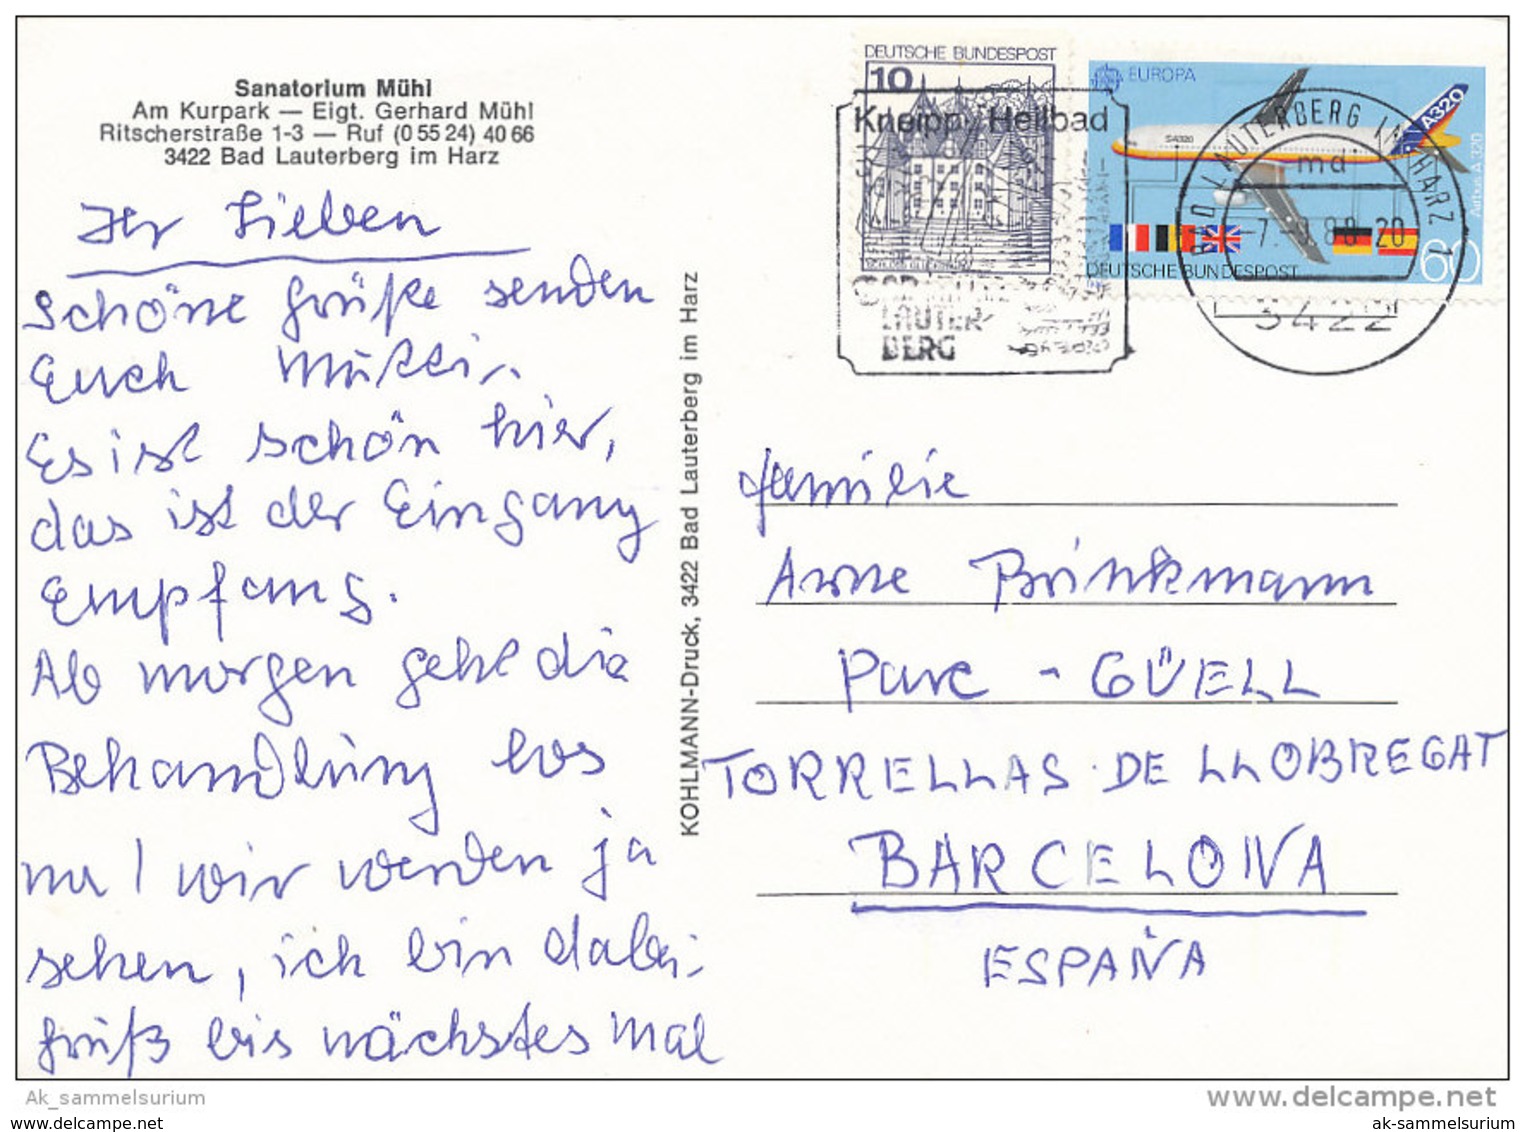 Sanatorium Mühl
Am Kurpark — Eigt. Gerhard Mühl
Ritscherstraße 1-3 — Ruf (0 55 24) 40 66
3422 Bad Lauterberg im Harz
Ihr Lieben
Schöne Grüße senden
Euch
Es ist schön hier,
das ist der Eingang
Empfang.
Ab morgen geht die
Behandlung los
na! wir werden ja
sehen, ich bin dabei.
Gruß bis nächstes Mal
KOHLMANN-Druck, 3422 Bad Lauterberg im Harz
DEUTSCHE BUNDESPOST
10
EUROPA
A320
Airbus A 320
DEUTSCHE BUNDESPOST
60
Kneipp-Heilbad
LAUTER-
BERG
BAD LAUTERBERG IM HARZ 1
md
3422
Familie
Anne Brinkmann
Parc - GÜELL
TORRELLAS DE LLOBREGAT
BARCELONA
ESPAÑA
Ak_sammelsurium
www.delcampe.net
www.ak-sammelsurium.de
ak-sammelsurium